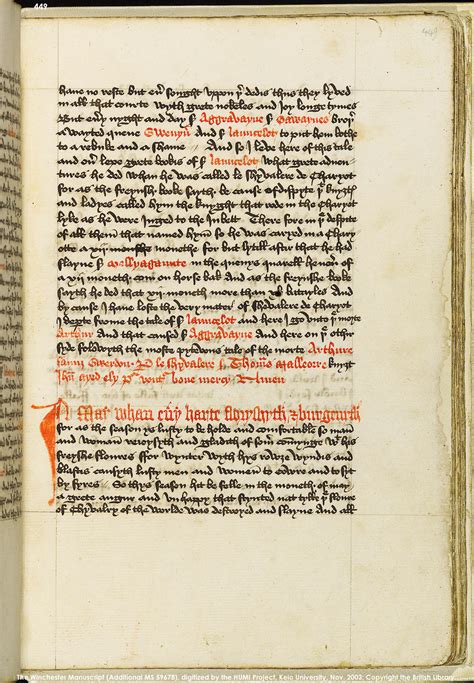 449
449
haue no reste but eu͛ sought vppon þ͛ dedis thus they lyved
in all that courte wyth grete nobeles and joy longe tymes
But eu͛y nyght and day sʳ Aggravayne sʳ Gawaynes broþ͛
awayted quene Gwenyu͛ And sʳ Launcelot to put hem bothe
to a rebuke and a shame And so I leve here of this tale
and ou͛ lepe grete bookis of sʳ Launcelot what grete adven
tures he ded whan he was called le Shyvalere de Charyot
for as the Freynshe booke sayth be cause of dispyte þᵗ knyȝtˢ
and ladyes called hym the knyght that rode in the Charyot
lyke as he were juged to the jubett There fore in despite
of all them that named hym so he was caryed in a Chary
otte a xii monethe for but lytill after that he had
slayne sʳ Mellyagaunte in the quenys quarell he neu͛ of
a xii moneth com on horse bak And as the freynshe booke
sayth he ded that xii moneth more than xl batayles And
by cause I haue loste the very mater of Shevalere de Charyot
I dep͛te frome the tale of sʳ Launcelot and here I go unto þᵉ morte
Arthur And that caused sʳ Aggravayne And here on þᵉ othir
syde folowyth the moste pytevous tale of the morte Arthure
saunz Gwerdon Pᵃ le shyvalere sʳ Thomas Malleorre knyȝt
Jhū ayede ly pᵘʳ voutʳ bone mercy Amen
In May whan eu͛y harte floryshyth & burgenyth
for as the season ys lusty to be holde and comfortable so man
and woman reioysyth and gladith of som͛ commynge wᵗ his
freyshe floures ffor wynter wyth hys rowze wyndis and
blastis causyth lusty men and women to cowre and to syt
by fyres So thys season hit be felle in the moneth of may
a grete angur and vnhappy that stynted nat tylle þᵉ floure
of Chyvalry of the worlde was destroyed and slayne And all
The Winchester Manuscript (Additional MS 59678), digitized by the HUMI Project, Keio University, Nov. 2003; Copyright the British Library